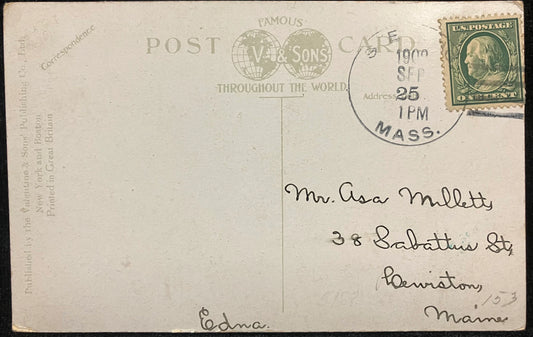 FAMOUS
POST CARD
V & SONS
THROUGHOUT THE WORLD.
Correspondence
Address
Published by The Valentine & Sons' Publishing Co., Ltd.
New York and Boston
Printed in Great Britain
SEP
25
1 PM
MASS.
U.S. POSTAGE
ONE CENT
Mr. Asa Millett,
38 Sabattus St,
Lewiston,
Maine
153
Edna.